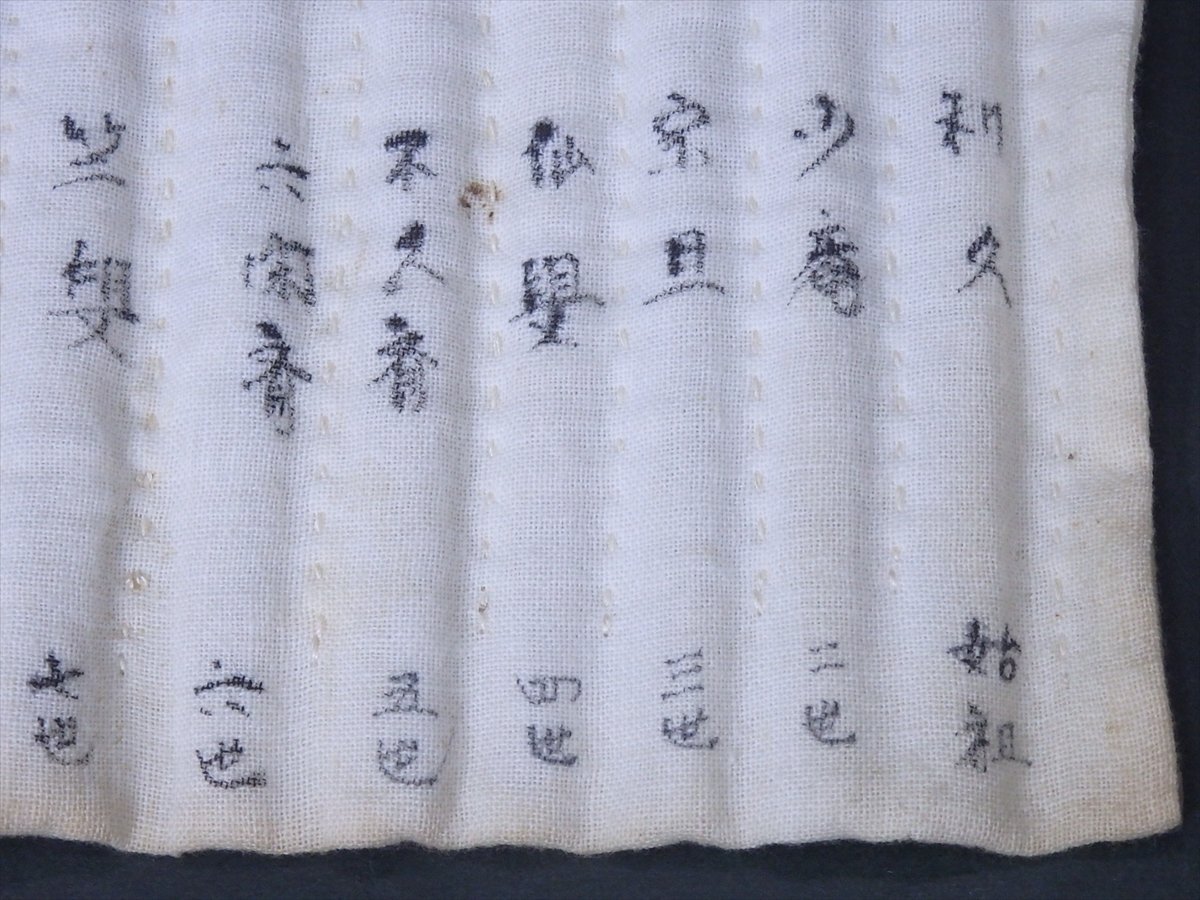 利久 始祖
少庵 二世
宗旦 三世
仙叟 四世
不久斎 五世
六閑斎 六世
竺叟 七世